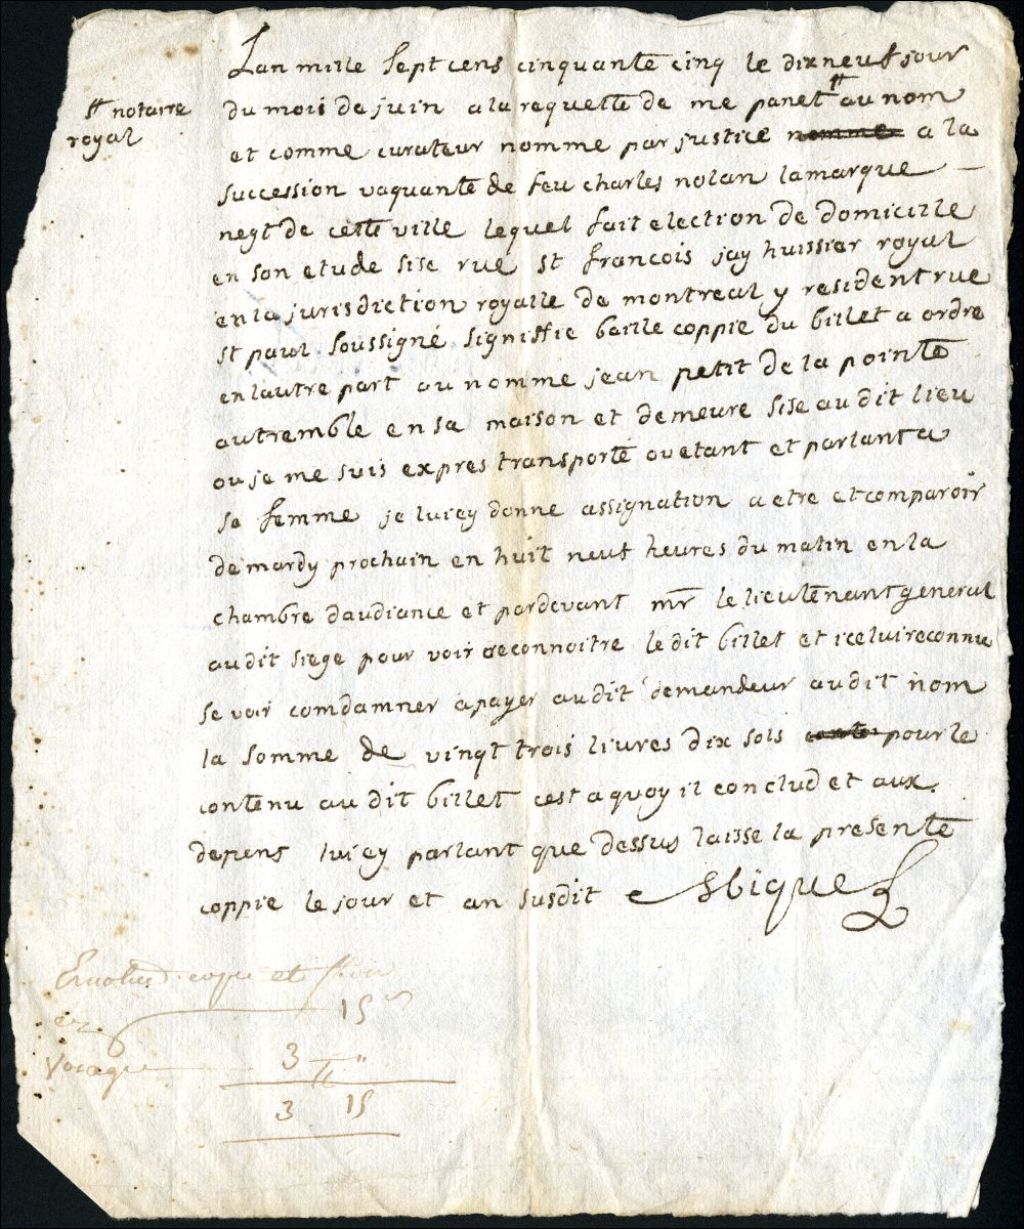 Lan mille Sept cens cinquante cinq le dixneuf jour
du mois de juin a la requette de me panet # au nom
# notaire
royal
et comme curateur nomme par justice nomme a la
succession vaquante de feu charles nolan lamarque
negt de cette ville lequel fait election de domicille
en son etude sise rue st francois jay huissier royal
en la jurisdiction royalle de montreal y resident rue
st paul soussigné signiffie baille coppie du billet a ordre
en lautre part au nomme jean petit de la pointe
au tremble en sa maison et demeure sise au dit lieu
ou je me suis expres transporté ou etant et parlant a
sa femme je luiey donne assignation a etre et comparoir
de mardy prochain en huit neuf heures du matin en la
chambre daudiance et pardevant mr le lieutenant general
au dit siege pour voir reconnoitre le dit billet et iceluireconnu
se voir comdamner apayer au dit demandeur au dit nom
la somme de vingt trois livres dix sols pour le
contenu au dit billet cest a quoy il conclud et aux
depens luiey parlant que dessus laisse la presente
coppie le jour et an susdit
copie et
15 s
3 ₶ "
3 15